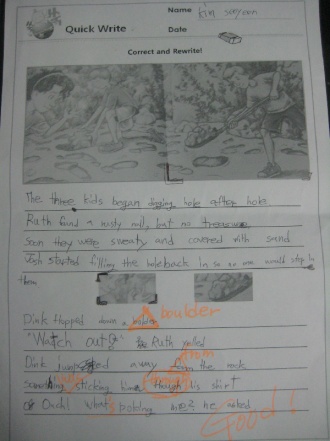 Name kim
Quick Write
Date
Correct and Rewrite!
The three kids began digging hole after hole
Ruth found a rusty nail, but no treasure
Soon they were sweaty and covered with sand
Josh started filling the hole back in so no one would step in
them
boulder
Dink flopped down a
"Watch out" Ruth yelled
from
Dink away the rock
Something sticking him though his shirt
Ouch! What's poking me? he asked
Good!